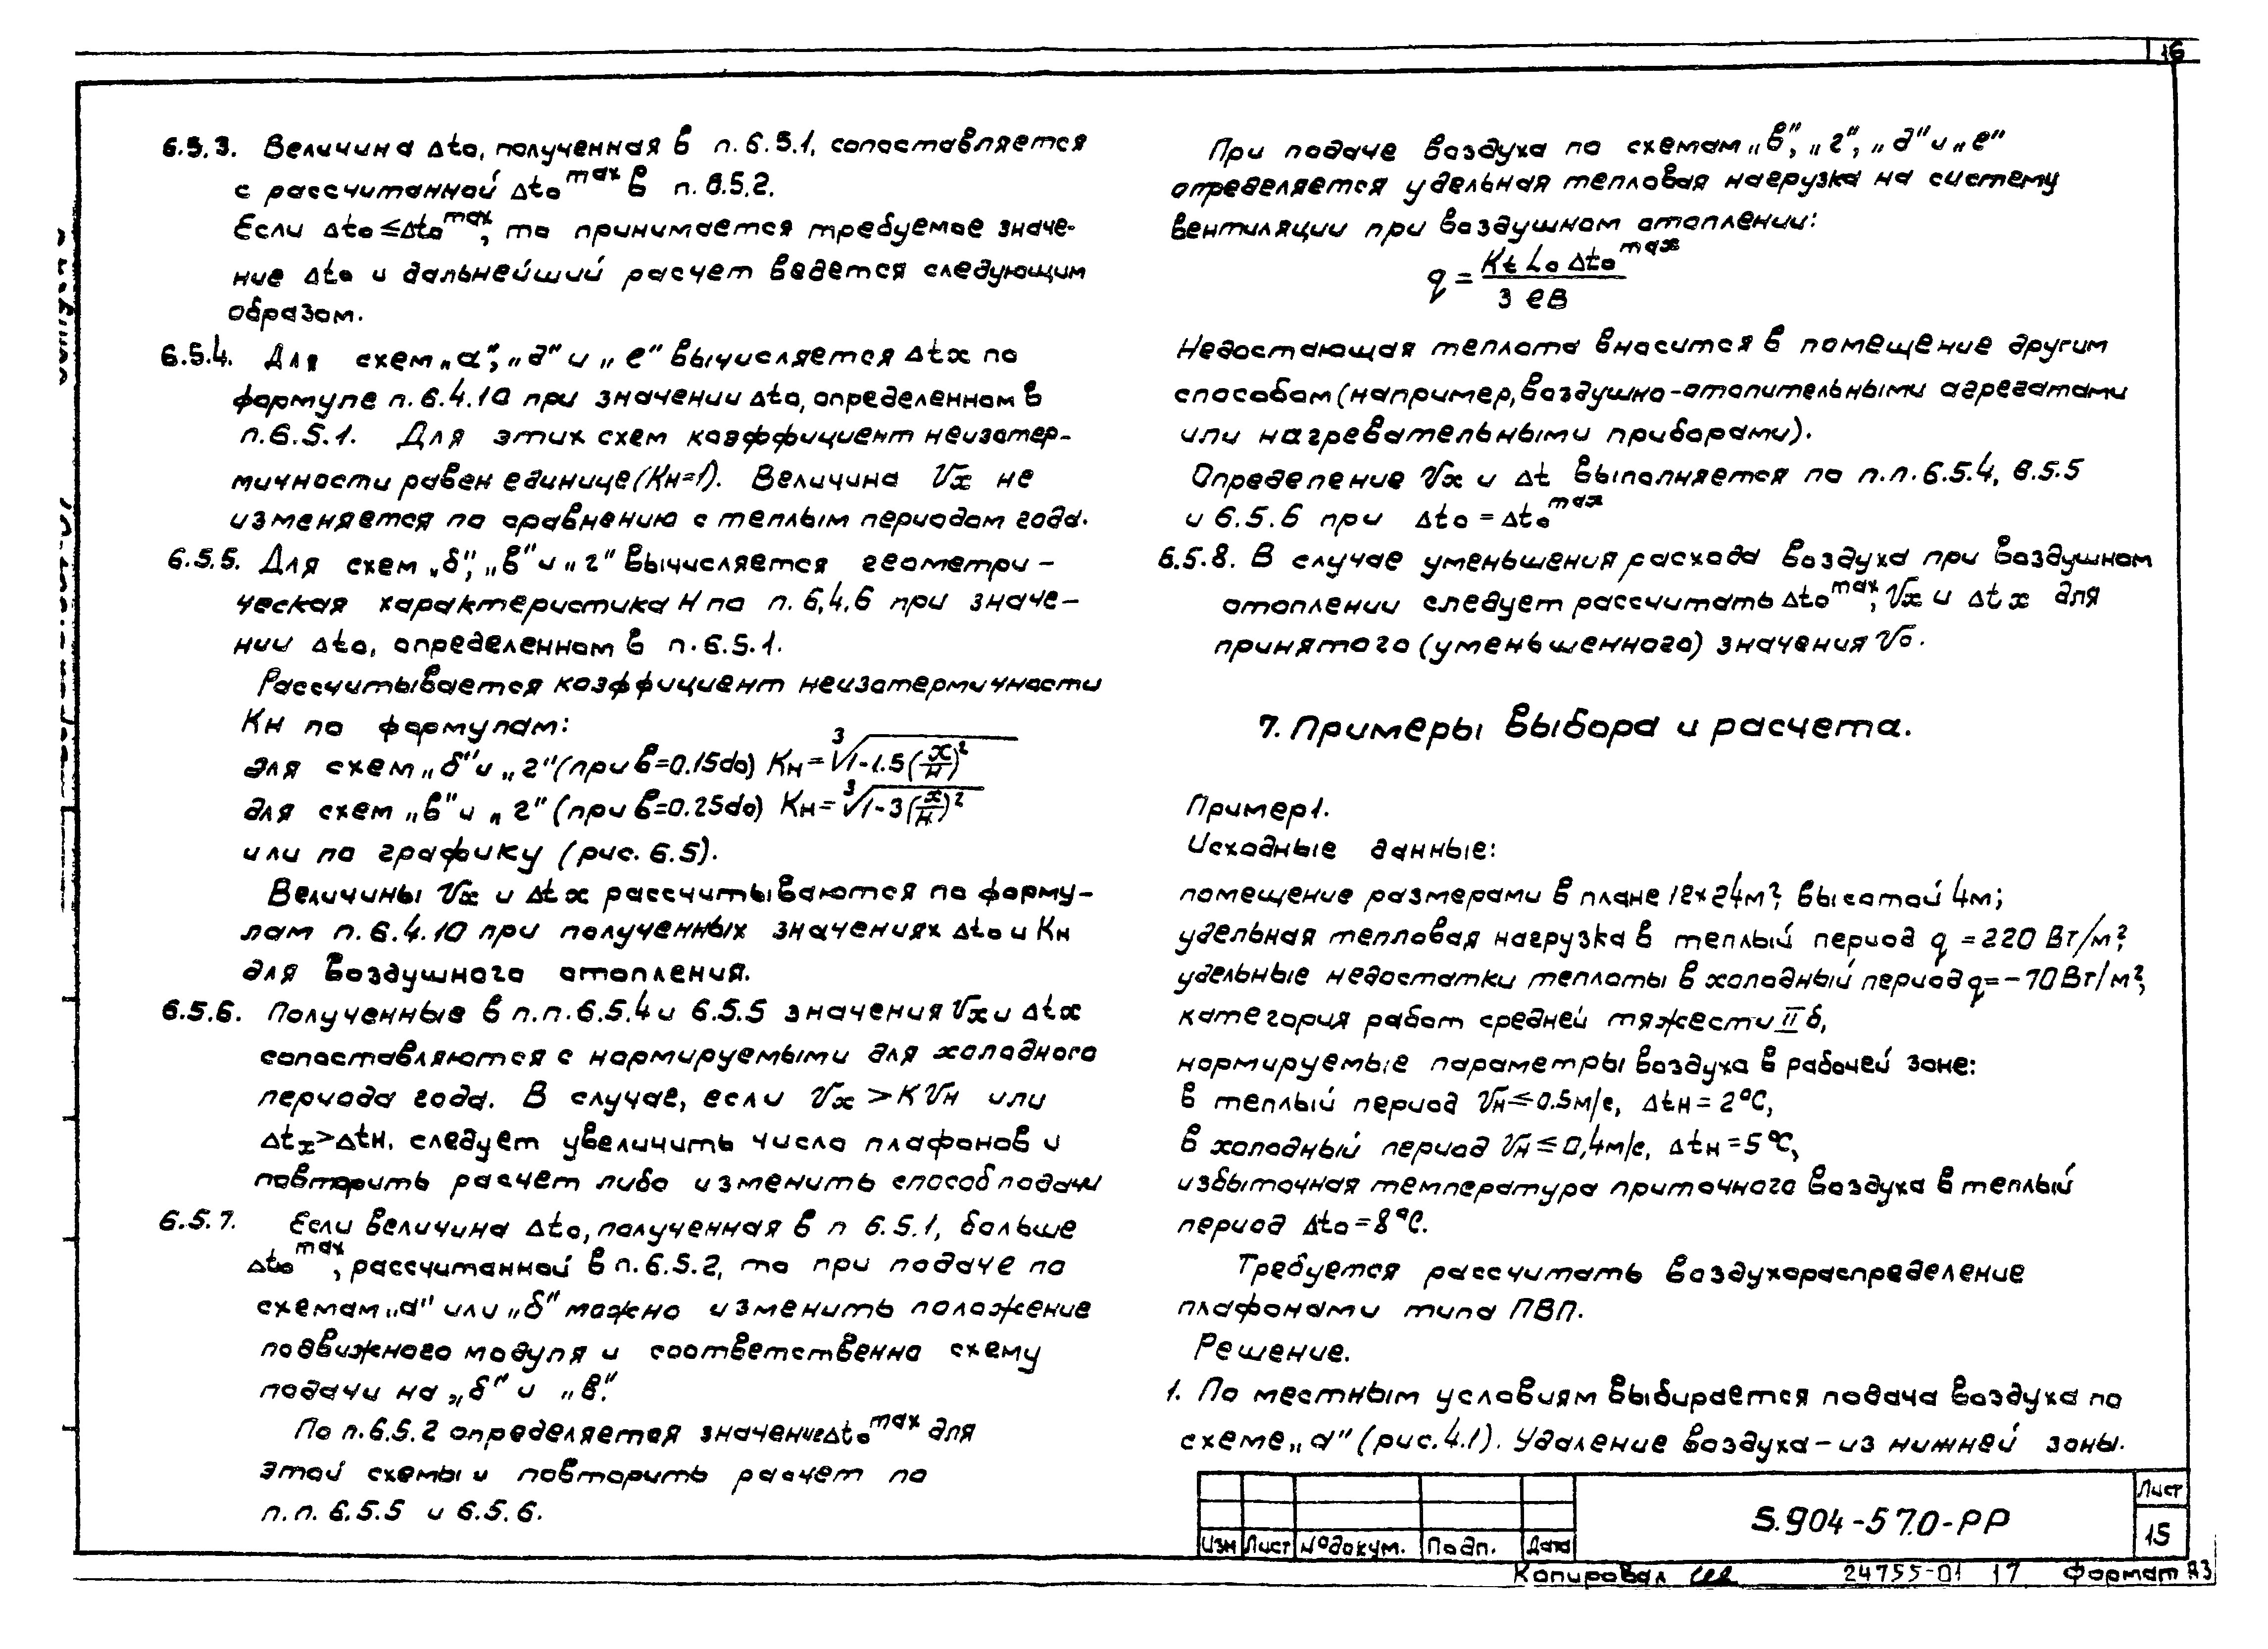 16
6.5.3. Величина Δto, полученная в п. 6.5.1, сопоставляется
с рассчитанной Δto max в п. 6.5.2.
Если Δto ≤ Δto max, то принимается требуемое значе-
ние Δto и дальнейший расчет ведется следующим
образом.
6.5.4. Для схем „а“, „д“ и „е“ вычисляется Δtx по
формуле п. 6.4.10 при значении Δto, определенном в
п.6.5.1. Для этих схем коэффициент неизотер-
мичности равен единице (Кн=1). Величина Vx не
изменяется по сравнению с теплым периодом года.
6.5.5. Для схем „б“, „в“ и „г“ вычисляется геометри-
ческая характеристика Н по п. 6.4.6 при значе-
нии Δto, определенном в п. 6.5.1.
Рассчитывается коэффициент неизотермичности
Кн по формулам:
для схем „б“ и „г“ (при в=0.15do) Кн = ∛1-1.5(x/H)²
для схем „в“ и „г“ (при в=0.25do) Кн = ∛1-3(x/H)²
или по графику (рис. 6.5).
Величины Vx и Δtx рассчитываются по форму-
лам п. 6.4.10 при полученных значениях Δto и Кн
для воздушного отопления.
6.5.6. Полученные в п.п. 6.5.4 и 6.5.5 значения Vx и Δtx
сопоставляются с нормируемыми для холодного
периода года. В случае, если Vx > К Vн или
Δtx > Δtн, следует увеличить число плафонов и
повторить расчет либо изменить способ подачи
6.5.7. Если величина Δto, полученная в п 6.5.1, больше
Δto max, рассчитанной в п. 6.5.2, то при подаче по
схемам „а“ или „б“ можно изменить положение
подвижного модуля и соответственно схему
подачи на „б“ и „в“.
По п. 6.5.2 определяется значение Δto max для
этой схемы и повторить расчет по
п.п. 6.5.5 и 6.5.6.
При подаче воздуха по схемам „в“, „г“, „д“ и „е“
определяется удельная тепловая нагрузка на систему
вентиляции при воздушном отоплении:
q = Kt Lo Δto max / 3 ев
Недостающая теплота вносится в помещение другим
способом (например, воздушно-отопительными агрегатами
или нагревательными приборами).
Определение Vx и Δt выполняется по п.п. 6.5.4, 6.5.5
и 6.5.6 при Δto = Δto max
6.5.8. В случае уменьшения расхода воздуха при воздушном
отоплении следует рассчитать Δto max, Vx и Δtx для
принятого (уменьшенного) значения Vo.
7. Примеры выбора и расчета.
Пример 1.
Исходные данные:
помещение размерами в плане 12×24м², высотой 4м;
удельная тепловая нагрузка в теплый период q = 220 Вт/м²,
удельные недостатки теплоты в холодный период q = -70 Вт/м²,
категория работ средней тяжести II б,
нормируемые параметры воздуха в рабочей зоне:
в теплый период Vн ≤ 0.5м/с, Δtн = 2°С,
в холодный период Vн ≤ 0,4м/с, Δtн = 5°С,
избыточная температура приточного воздуха в теплый
период Δto = 8°С.
Требуется рассчитать воздухораспределение
плафонами типа ПВП.
Решение.
1. По местным условиям выбирается подача воздуха по
схеме „а“ (рис. 4.1). Удаление воздуха - из нижней зоны.
Изм Лист №докум. Подп. Дата
5.904-57.0-РР
Лист
15
Копировал
24755-01 17 Формат А3